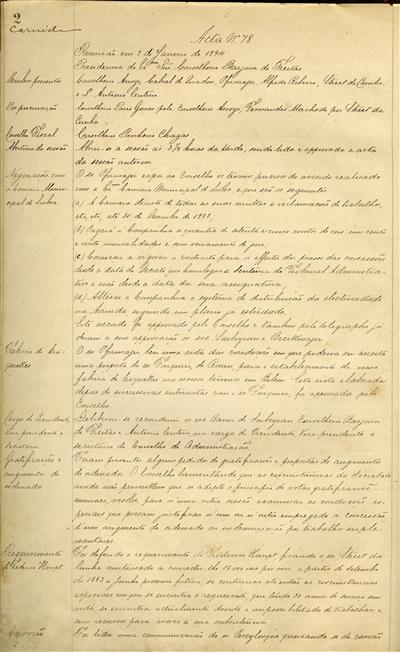 2
Carnide
Acta Nº 78
Reunião em 2 de Janeiro de 1894
Presidencia do Exmo Snr Conselheiro Barjona de Freitas
Membros presentes
Conselheiro Arroyo, Cabral de Quadros, Pfrimager, Alfredo Ribeiro, Street da Cunha
e S. Antonio Centeno
Por procuração
Conselheiro Pinto Gomes pelo Conselheiro Arroyo, Fernandes Machado por Street da
Cunha
Conselho Fiscal
Conselheiro Penhoro Chagas
Abertura da sessão
Abriu-se a sessão ás 3½ horas da tarde, sendo lida e approvada a acta
da sessão anterior
Negociações com
a Camara Municipal de Lisboa
O sr Pfrimager expoz ao Conselho os termos precisos do accordo realisado
com a Exma Camara Municipal de Lisboa, e que são os seguintes
(a) A Camara desiste de todas as suas multas e reclamações de trabalhos,
etc, etc, até 31 de Dezembro de 1893,
(b) Pagará a Companhia a quantia de setenta e cinco contos de reis em cento
e vinte mensalidades e sem vencimento de juro,
(c) Começar a vigorar o contracto para os effeitos dos prasos das concessões
desde a data do Decreto que homologou a Sentença do Tribunal Administrativo
e não desde a data da sua assignatura,
(d) Alterar a Companhia o systema de distribuição da electricidade
na Avenida segundo um plano já estudado.
Este accordo foi approvado pelo Conselho e tambem pelo telegrapho já
deram a sua approvação os srs
Fabrica de briquettes
O sr Pfrimager leu uma nota das condições em que poderia ser acceita
uma proposta do sr para o estabelecimento de uma
fabrica de briquettes nos nossos terrenos em Belem. Esta nota elaborada
depois de successivas entrevistas com o sr foi approvada pelo
Conselho
Cargo de Presidente,
Vice presidente e
Secretario
Deliberou-se reconduzir os srs Conselheiro Barjona
de Freitas e Antonio Centeno nos cargos de Presidente, Vice presidente e
secretario do Conselho de Administração
Gratificações e
augmento de
ordenado
Foram presentes alguns pedidos de gratificações e propostas de augmento
de ordenado. O Conselho lamentando que as circumstancias da Sociedade
ainda não permittem que se adopte o principio de votar gratificações
annuaes, resolve para n'uma outra sessão, examinar as condições especiaes
que possam justificar n'um ou n'outro empregado a concessão
d'um augmento de ordenado ou indemnisação por trabalho supplementares
Requerimento
de Frederico Haupt
Foi deferido o requerimento de Frederico Haupt ficando o sr Street da
Cunha auctorisado a conceder-lhe 18.000 reis por mez a partir de Setembro
de 1893 a Junho proximo futuro, se continuar até então as circumstancias
especiaes em que se encontra o requerente, que tendo 30 annos de serviço
se encontra actualmente doente e impossibilitado de trabalhar, e
sem recursos para prover á sua subsistencia
Carvão
Foi lida uma communicação do sr guardando a do carvão